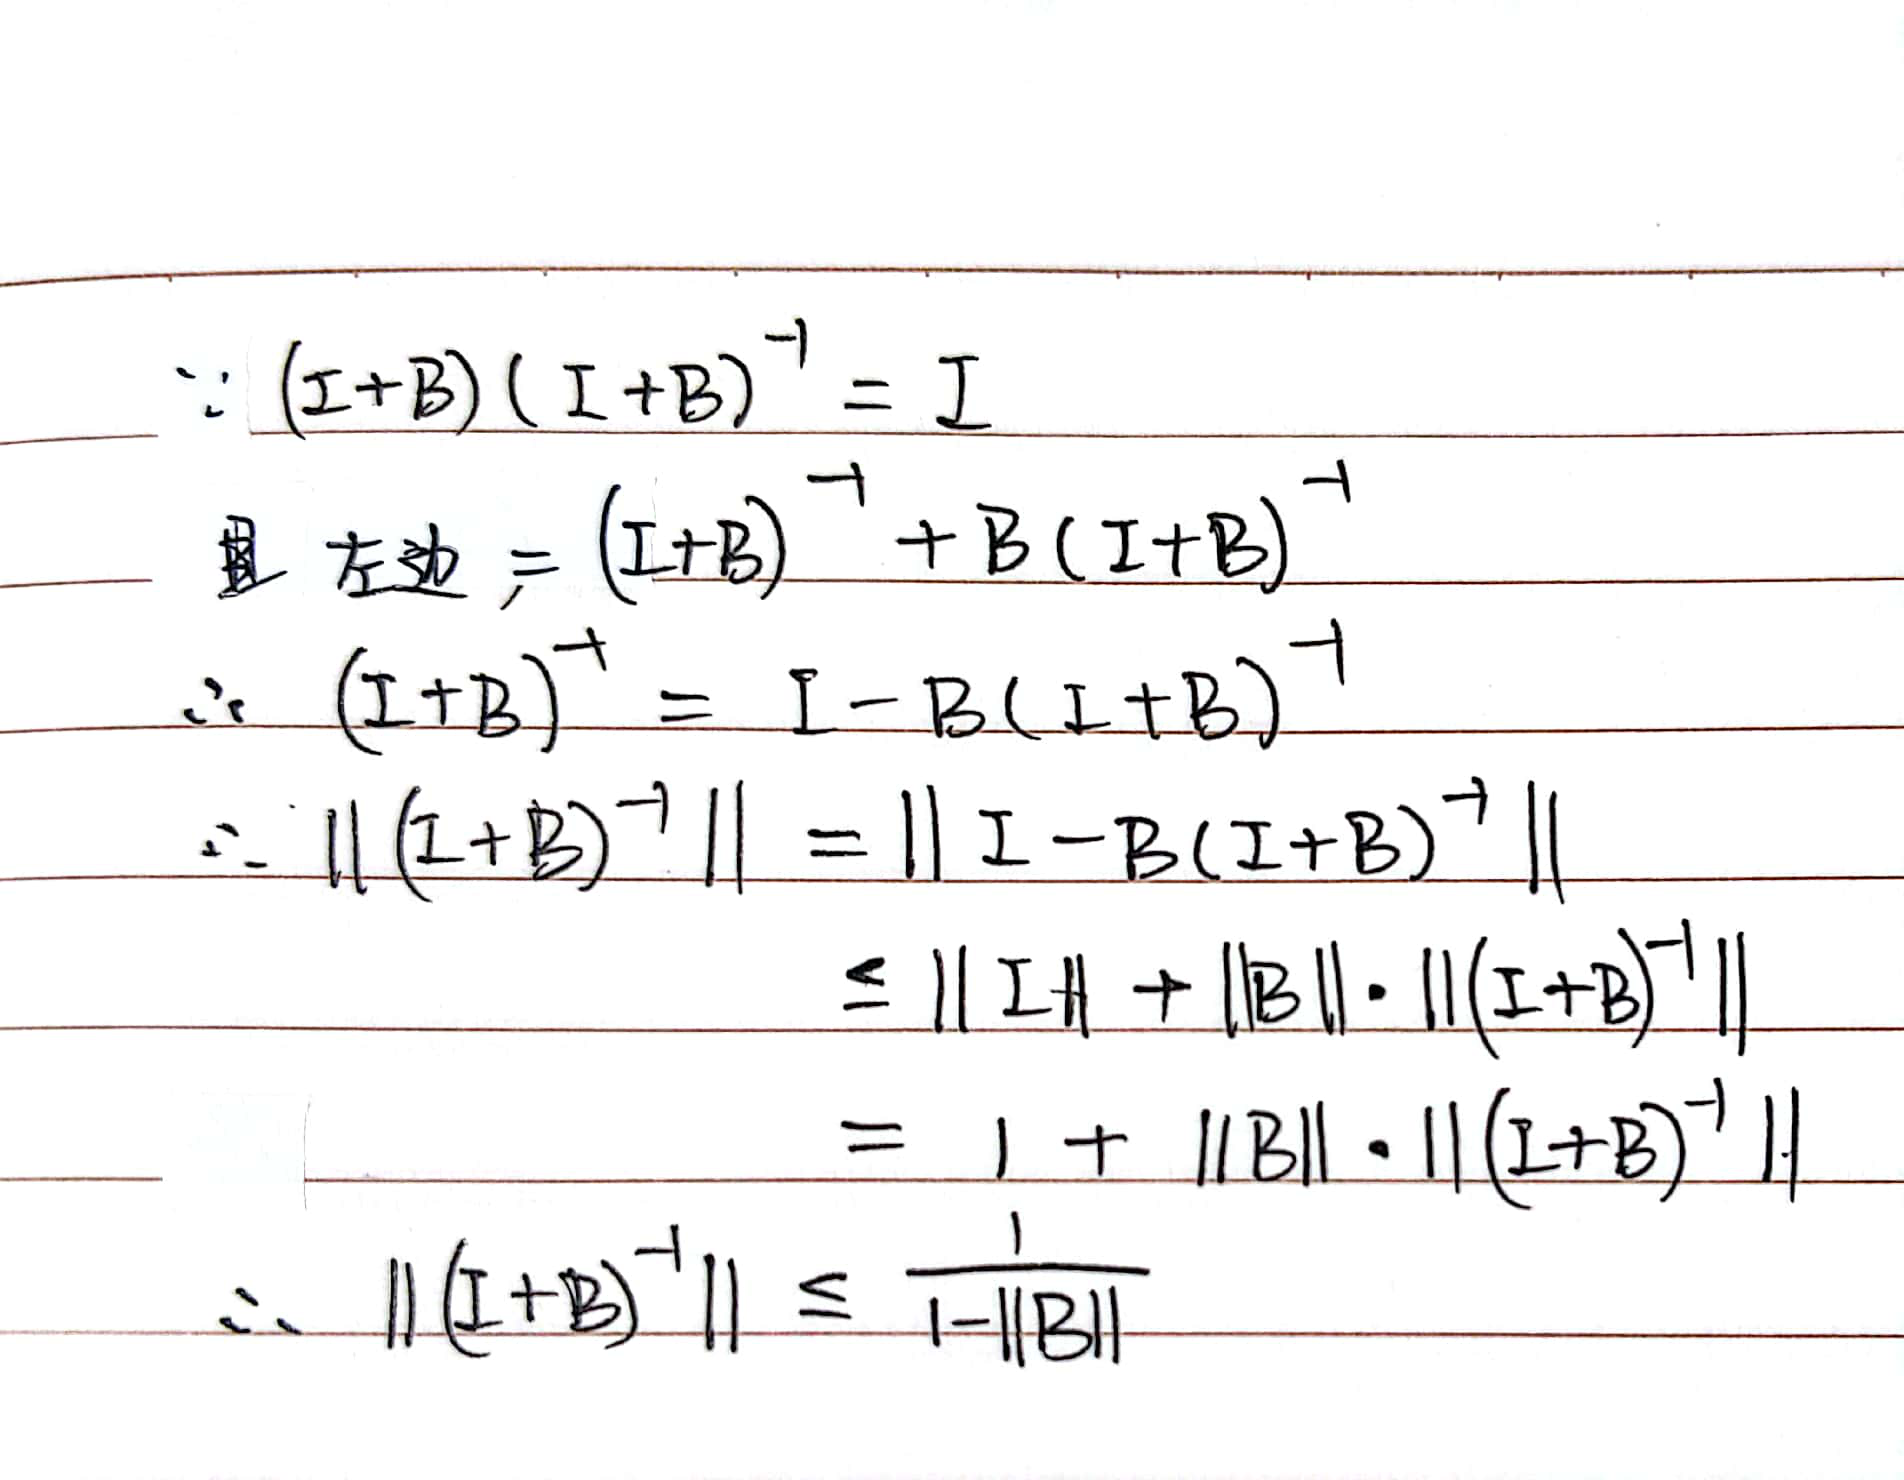 ∵ (I+B)(I+B)⁻¹ = I
且 左边 = (I+B)⁻¹ + B(I+B)⁻¹
∴ (I+B)⁻¹ = I - B(I+B)⁻¹
∴ ||(I+B)⁻¹|| = ||I - B(I+B)⁻¹||
≤ ||I|| + ||B||·||(I+B)⁻¹||
= 1 + ||B||·||(I+B)⁻¹||
∴ ||(I+B)⁻¹|| ≤ 1/(1-||B||)